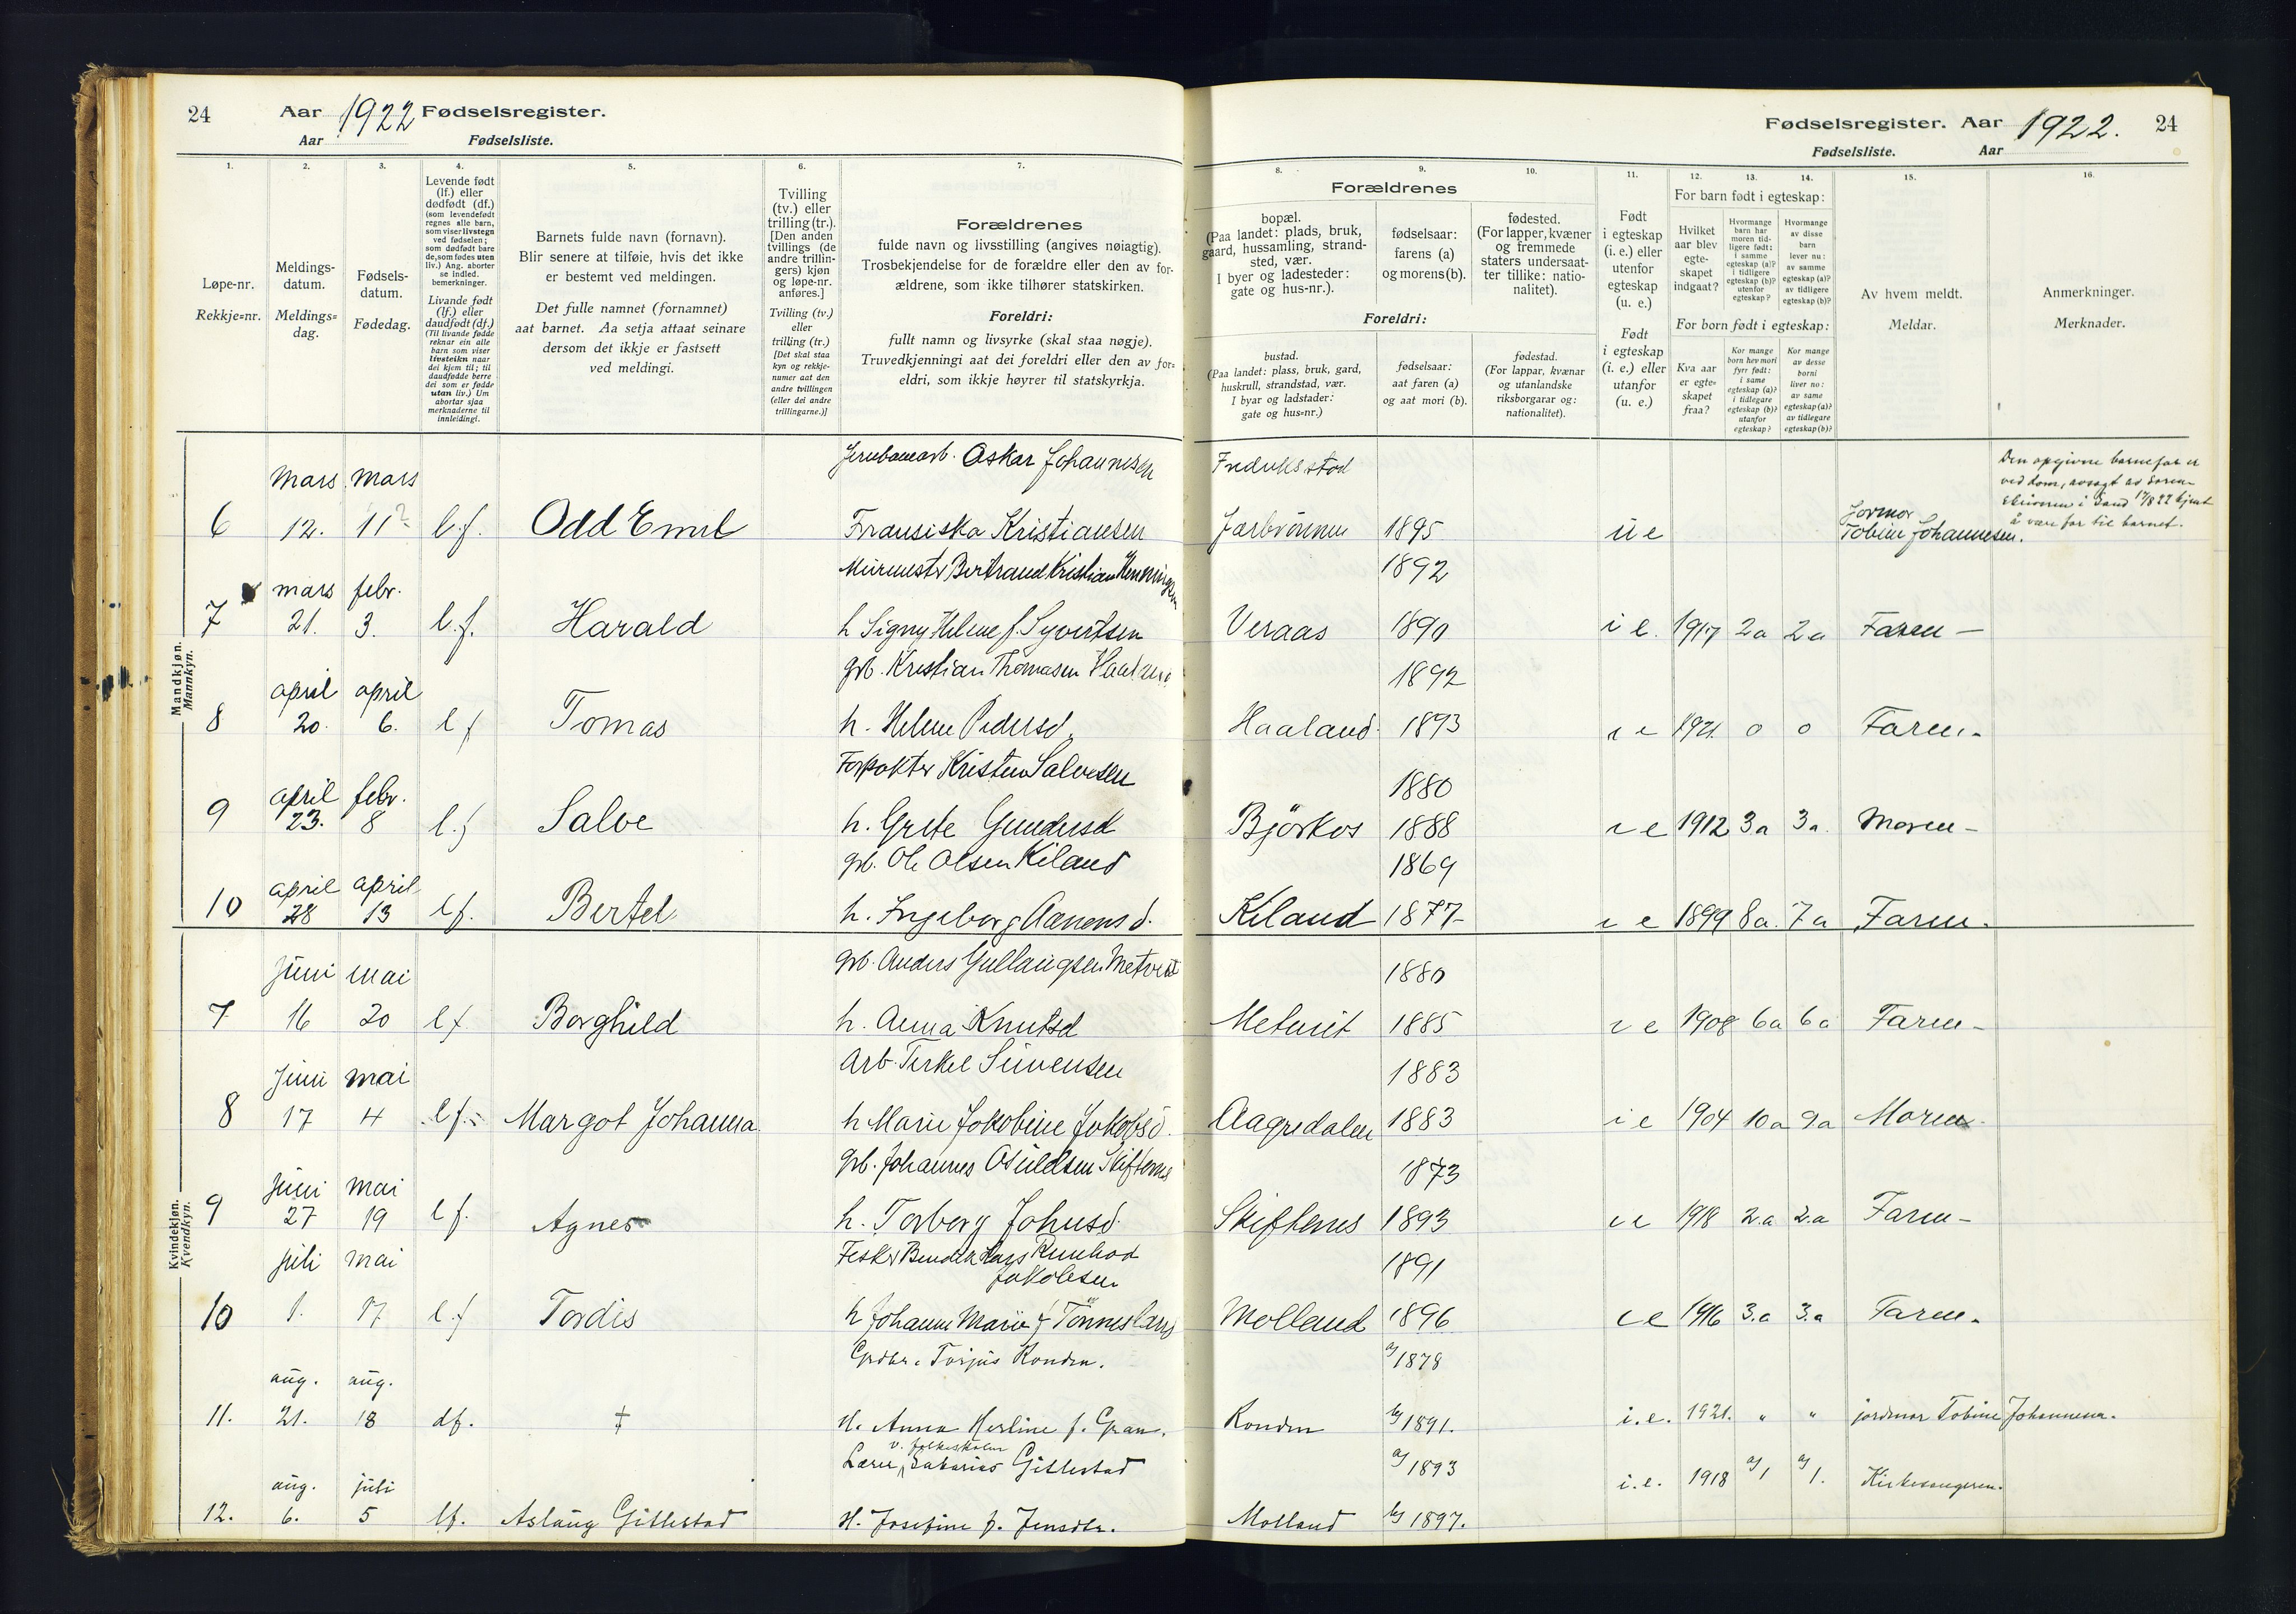 24 Aar 1922 Fødselsregister.
Aar Fødselsliste.
Fødselsregister. Aar 1922. 24
Fødselsliste. Aar
1. 2. 3. 4. 5. 6. 7.
8. 9. 10. 11. 12. 13. 14. 15. 16.
Løpe-nr.
Rekkje=nr.
Meldings-
datum.
Meldings=
dag.
Fødsels-
datum.
Fødedag.
Levende født
(lf.) eller
dødfødt (df.)
(som levendefødt
regnes alle barn,
som viser livstegn
ved fødselen;
som dødfødt bare
de, som fødes uten
liv.) Ang. aborter
se indled.
bemerkninger.
Livande født
(lf.) eller
daudfødt (df.)
(Til livande fødde
reknar ein alle
barn som viser
livsteikn naar
dei kjem til; til
daudfødde berre
dei som er fødde
utan liv.) Um
abortar sjaa
merknaderne til
innleidingi.
Barnets fulde navn (fornavn).
Blir senere at tilføie, hvis det ikke
er bestemt ved meldingen.
Det fulle namnet (fornamnet)
aat barnet. Aa setja attaat seinare
dersom det ikkje er fastsett
ved meldingi.
Tvilling
(tv.) eller
trilling (tr.).
[Den anden
tvillings (de
andre trillin-
gers) kjøn
og løpe-nr.
anføres.]
Tvilling (tv.)
eller
trilling (tr.)
[Det skal staa
kyn og rekkje-
numer aat den
andre tvillingen
(eller dei andre
trillingarne.)]
Forældrenes
fulde navn og livsstilling (angives nøiagtig).
Trosbekjendelse for de forældre eller den av for-
ældrene, som ikke tilhører statskirken.
Foreldri:
fullt namn og livsyrke (skal staa nøgje).
Truvedkjenningi aat dei foreldri eller den av for=
eldri, som ikkje høyrer til statskyrkja.
Forældrenes
bopæl.
(Paa landet: plads, bruk,
gaard, hussamling, strand-
sted, vær.
I byer og ladesteder:
gate og hus-nr.).
fødselsaar:
farens (a)
og morens (b).
fødested.
(For lapper, kvæner
og fremmede
staters undersaat-
ter tillike: natio-
nalitet).
Foreldri:
bustad.
(Paa landet: plass, bruk, gard,
huskrull, strandstad, vær.
I byar og ladstader:
gate og hus=nr.)
fødselsaar:
aat faren (a)
og aat mori (b).
fødestad.
(For lappar, kvænar
og utanlandske
riksborgarar og:
nationalitet).
Født
i egteskap
(i. e.) eller
utenfor
egteskap
(u. e.)
Født
i egteskap
(i. e.) eller
utanfor
(u. e.)
For barn født i egteskap:
Hvilket
aar blev
egte-
skapet
indgaat?
Hvormange
barn har
moren tid-
ligere født:
i samme
egteskap (a)?
i tidligere
egteskap (b)?
utenfor
egteskap?
Hvormange
av disse
barn
lever nu:
av samme
egteskap (a)?
av tidligere
egteskap (b)?
For born født i egteskap:
Kva aar
er egte=
skapet
fraa?
Kor mange
born hev mori
fyrr født:
i same
egteskap (a)?
i tidlegare
egteskap (b)?
utanfor
egteskap?
Kor mange
av desse
borni
liver no:
av same
egteskap (a)?
av tidlegare
egteskap (b)?
Av hvem meldt.
Meldar.
Anmerkninger.
Merknader.
Mandkjøn.
Mannkyn.
Jernbanearb. Oskar Johannesen Fredriksstad
mars mars
6 12. 11 l.f. Odd Emil Fransiska Kristiansen 1895 u e Jormor Tobine Johannesen.
Den opgivne barnefar er
ved dom, avsagt av Soren-
skriveren i Sand 17/8 22 kjent
å være far til barnet.
Murmester Bertrand Kristian Henningsen 1892
mars febr.
7 21. 3. l.f. Harald h Signy Helene f. Syvertsen Veraas 1890 i e. 1917 2a 2a Faren —
grb. Kristian Thomasen Haaland 1892
april april
8 20. 6. l f Tomas h. Helene Pedersd. Haaland 1893 i e 1921 0 0 Faren.
Forpakter Kristen Salvesen 1880
april febr.
9 23. 8 l.f Salve h. Grete Gundersd Bjørkos 1888 i e 1912 3a 3a. Moren —
grb. Ole Olsen Kiland 1869
april april
10 28 13 l f. Bertel h. Ingeborg Aanensd. Kiland 1877 i e 1899 8a. 7a Faren.
Kvindekjøn.
Kvendkyn.
grb. Anders Gullaugsen Metveit 1880
juni mai
7 16 20 l f Borghild h. Anna Knutsd Metveit 1885 i e 1908 6a 6a Faren —
Arb. Terkel Sivensen 1883
juni mai
8 17 4 l f. Margot Johanna h Marie Jakobine Jakobsd. Aagredalen 1883 i e 1904 10a 9a Moren
grb. Johannes Osuldsen Skiftenes 1873
juni mai
9 27 19 l f. Agnes h. Torborg Johnsd. Skiftenes 1893 i e 1918 2.a 2.a Faren —
Jakobsen 1891
juli mai
10 1. 17 l.f Tordis h Johanne Marie f Tønneslands Molland 1896 i e 1916 3.a 3.a Faren.
Grdbr. Torjus Ronden. a/ 1878
aug. aug.
11. 21. 18 df. † H. Anna Herline f. Gran. Ronden b/ 1891. i.e. 1921. " " jordmor Tobine Johannesen.
v. folkeskolen
Lærer Sakarias Gitlestad a/ 1893
aug. juli
12. 6. 5 lf. Aslaug Gitlestad H. Josefine f. Jensdtr. Molland b/ 1897. i.e. 1918 a/1 a/1. Kirkesangeren.